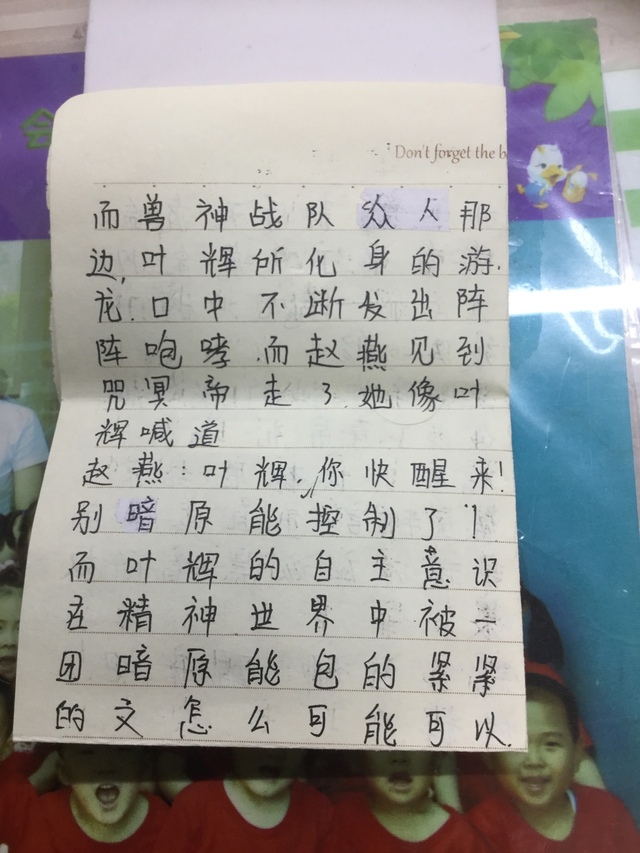 会
Don't forget the b
而兽神战队众人那
边,叶辉所化身的游.
龙.口中不断发出阵
阵咆哮.而赵燕见到
咒冥帝走了.她像叶
辉喊道
赵燕:叶辉.你快醒来!
别暗原能控制了!
而叶辉的自主意识
在精神世界中被一
团暗原能包的紧紧
的文怎么可能可以.